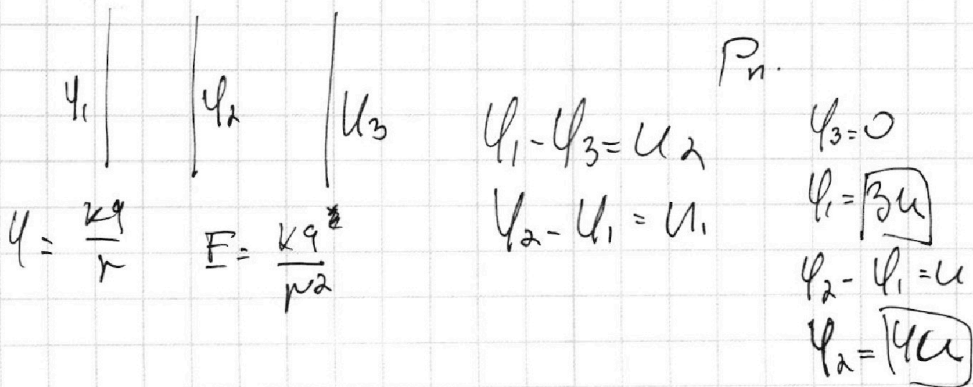 φ₁ φ₂ φ₃
φ = kq/r E = kq/r²
φ₁ - φ₃ = U₂
φ₂ - φ₁ = U₁
φ₃ = 0
φ₁ = 3u
φ₂ - φ₁ = u
φ₂ = 4u